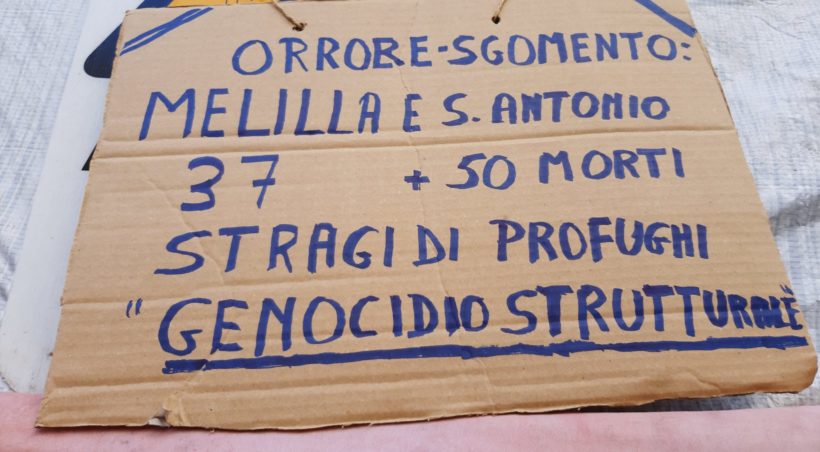 ORRORE-SGOMENTO:
MELILLA E S. ANTONIO
37 + 50 MORTI
STRAGI DI PROFUGHI
"GENOCIDIO STRUTTURALE"